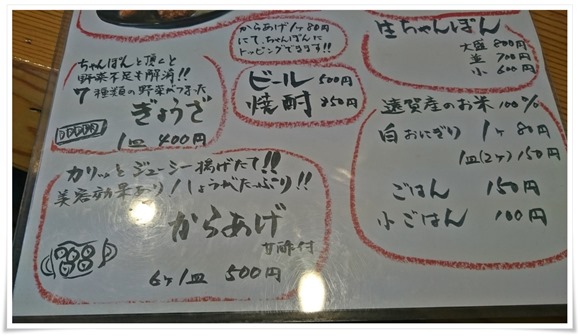 からあげ1ケ80円
にて、ちゃんぽんに
トッピングできます!!
生ちゃんぽん
大盛 800円
並 700円
小 600円
ちゃんぽんと頂くと
野菜不足も解消!!
7種類の野菜がつまった
ぎょうざ
1皿 400円
ビール 500円
焼酎 350円
遠賀産のお米100%
白おにぎり 1ケ 80円
1皿(2ケ) 150円
ごはん 150円
小ごはん 100円
カリッとジューシー揚げたて!!
美容効果あり!しょうがたっぷり!!
からあげ
甘酢付
6ケ1皿 500円